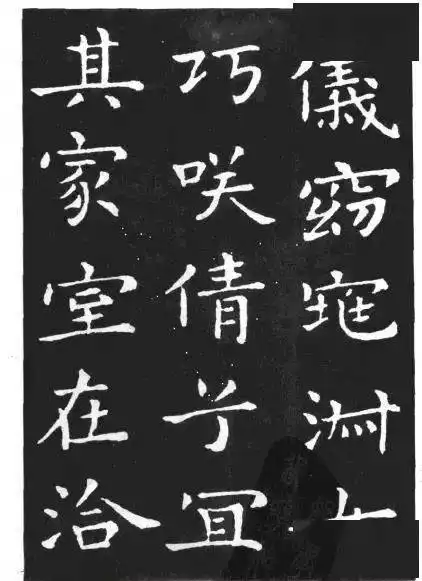 儀窈窕淑
巧咲倩兮冝
其家室在洽